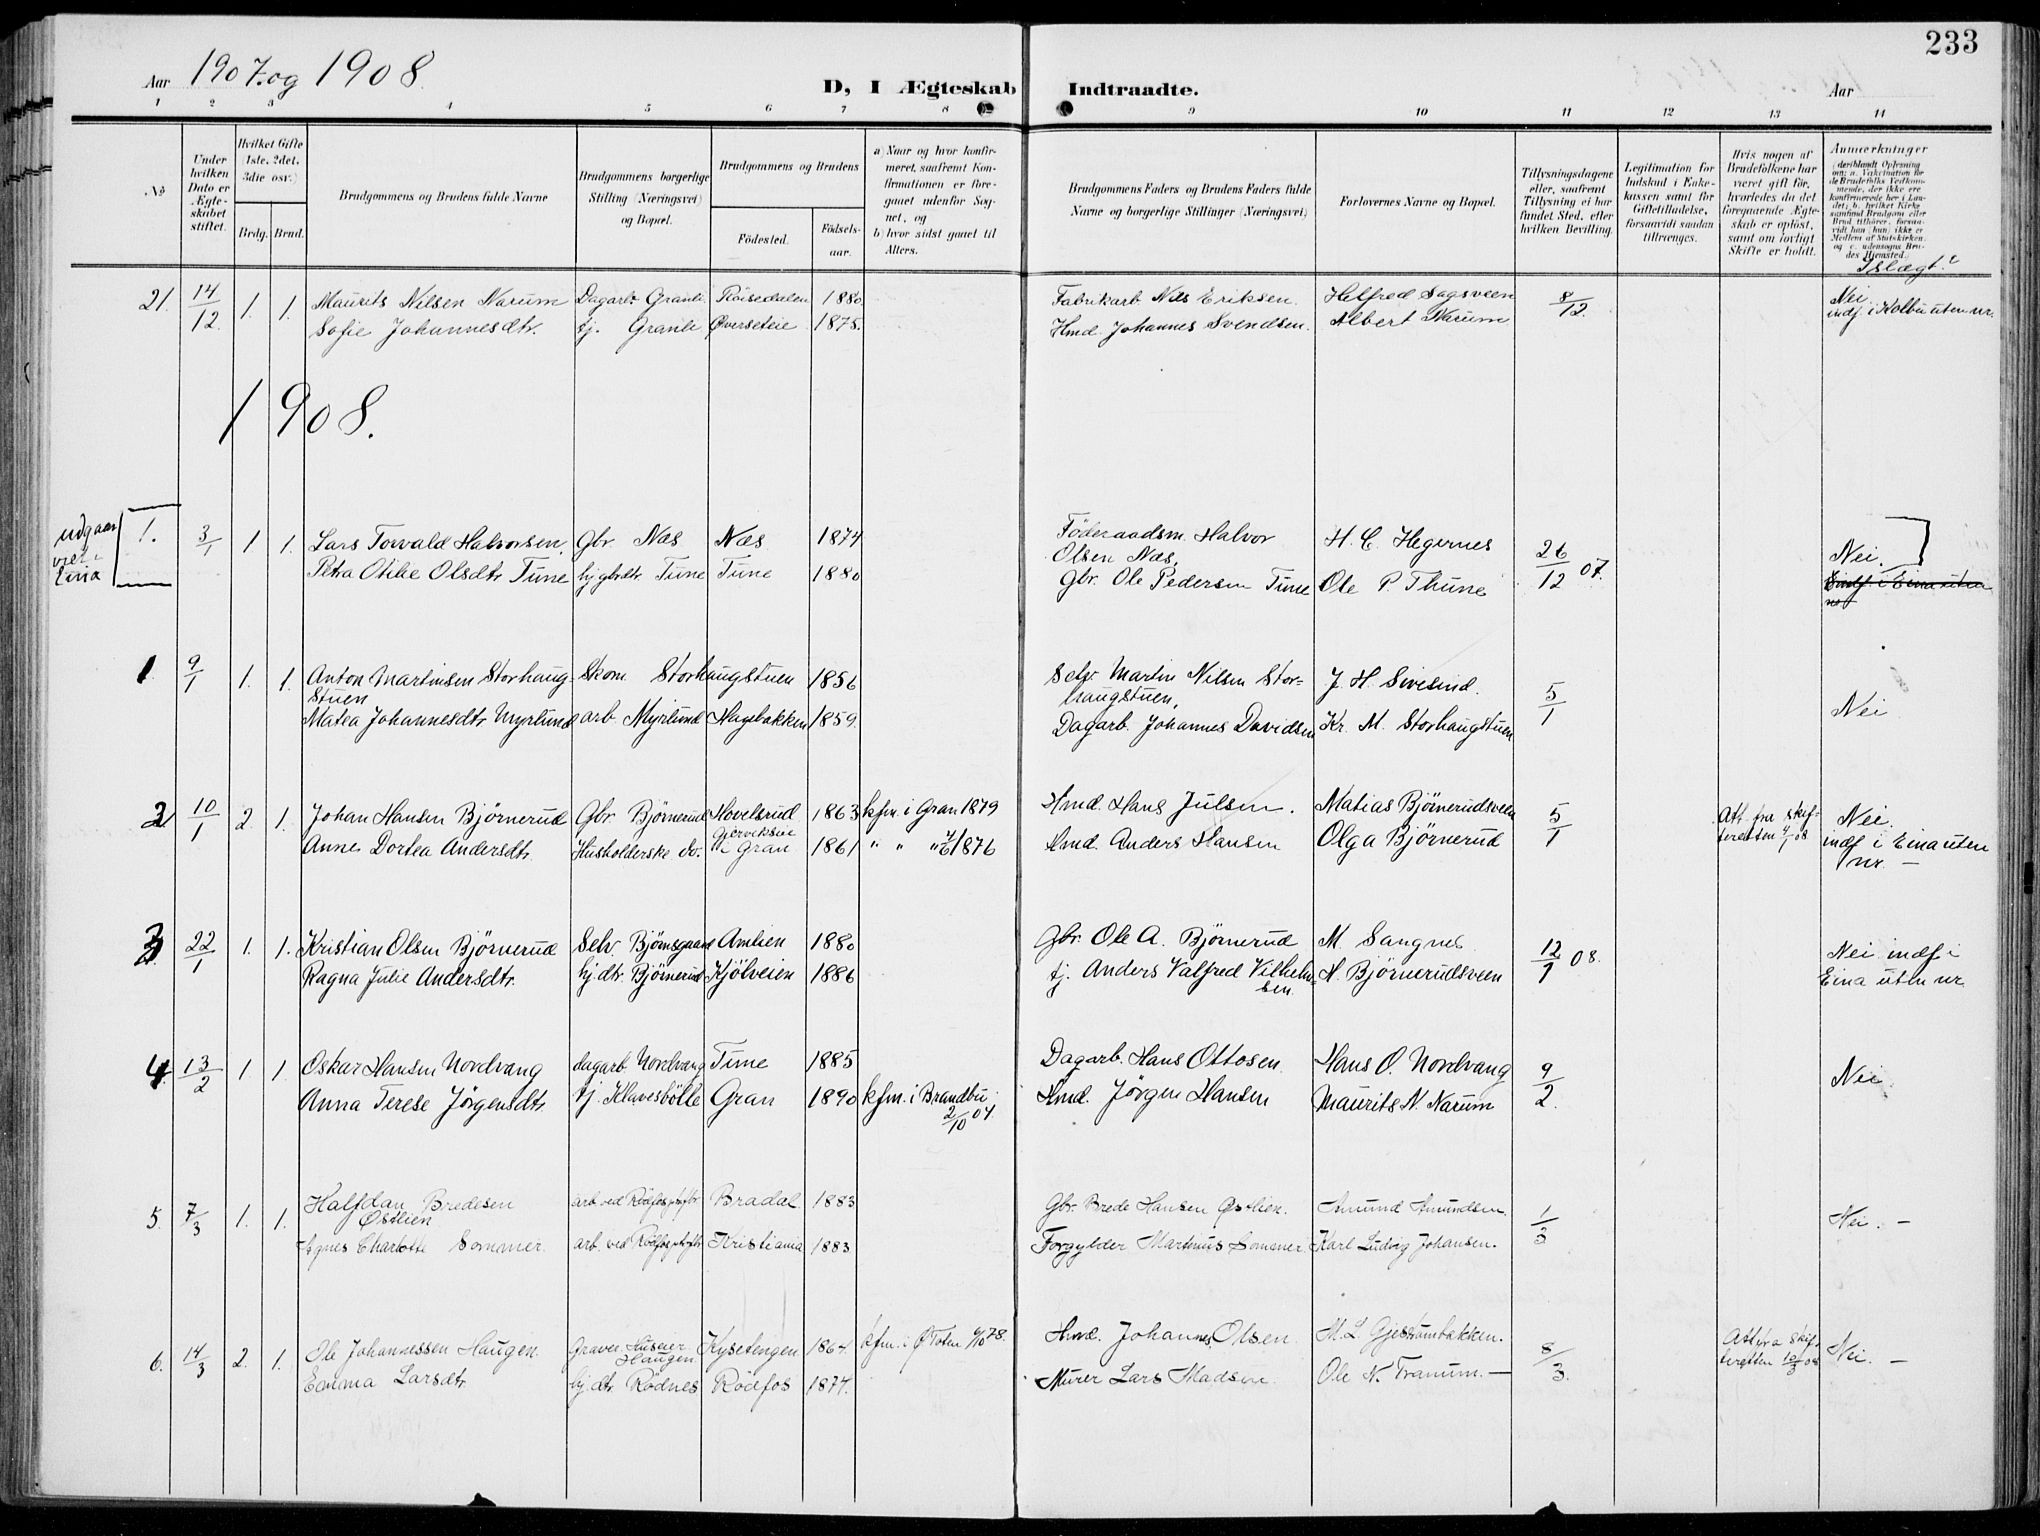 233
Aar 1907 og 1908.
D, I Ægteskab Indtraadte.
Aar
1 2 3 4 5 6 7 8 9 10 11 12 13 14
No
Under hvilken Dato er Ægteskabet stiftet.
Hvilket Gifte (1ste, 2det, 3die osv.)
Brdg. Brud.
Brudgommens og Brudens fulde Navne
Brudgommens borgerlige Stilling (Næringsvei) og Bopæl.
Brudgommens og Brudens
Födested.
Födselsaar.
a) Naar og hvor konfirmeret, saafremt Konfirmationen er foregaaet udenfor Sognet, og
b) hvor sidst gaaet til Alters.
Brudgommens Faders og Brudens Faders fulde Navne og borgerlige Stillinger (Næringsvei)
Forlovernes Navne og Bopæl.
Tillysningsdagene eller, saafremt Tillysning ei har fundet Sted, efter hvilken Bevilling.
Legitimation for Indskud i Enkekassen samt for Giftetilladelse, forsaavidt saadan tiltrænges.
Hvis nogen af Brudefolkene har været gift för, hvorledes da det foregaaende Ægteskab er oplöst, samt om lovligt Skifte er holdt.
Anmerkninger
(deriblandt Oplysning om: a. Vakcination for de Brudefolks Vedkommende, der ikke ere konfirmerede her i Landet; b. hvilket Kirkesamfund Brudgom eller Brud tilhörer, forsaavidt han (hun) ikke er Medlem af Statskirken, og c. udensogns Brudes Hjemsted.)
I slægt?
21. 14/12 1. 1. Maurits Nilsen Narum Dagarb. Granli Röisedalen 1880. Fabrikarb. Nils Eriksen. Helfred Sagsveen 8/12. Nei
Sofie Johannesdtr. tj. Granli Øverseteie 1875. Hmd. Johannes Svendsen. Albert Narum indf. i Kolbu uten nr.
1908.
udgaar
Eina
1. 3/1 1 1. Lars Torvald Halvorsen. Gbr. Næs Næs 1874 Föderaadsm. Halvor Olsen Næs, H. C. Hegernes 26/12 07. Nei.
Petra Otilie Olsdtr Tune hj. gbrdtr. Tune Tune 1880 Gbr. Ole Pedersen Tune Ole P. Thune Indf. i Eina uten nr
1. 9/1 1. 1. Anton Martinsen Storhaugstuen Skom. Storhaugstuen 1856 Selv. Martin Nilsen Storhaugstuen, J. H. Sivesind. 5/1 Nei
Matea Johannesdtr Myrlund arb. Myrlund Hagebakken 1859. Dagarb. Johannes Davidsen Kr. M. Storhaugstuen
2. 10/1 2. 1. Johan Hansen Björnerud Gbr. Björnerud Hovelsrud 1863 kfm. i Gran 1879 Hmd. Hans Julsen. Matias Björnerudsveen 5/1 Att. fra skifteretten 4/1 08 Nei.
Anne Dortea Andersdtr. Husholderske do. i Gran 1861 " " 1876 Hmd. Anders Hansen Olga Björnerud indf. i Eina uten nr. —
3. 22/1 1. 1. Kristian Olsen Björnerud Selv. Björnsgaard Amlien 1880 Gbr. Ole A. Björnerud M. Sangnes 12/1 08. Nei indf i
Ragna Julie Andersdtr. hj. dtr. Björnerud Kjölveien 1886 tj. Anders Valfred Vilhelmsen. H. Björnerudsveen Eina uten nr.
4. 13/2 1 1. Oskar Hansen Nordvang dagarb. Nordvang Tune 1885 Dagarb. Hans Ottosen Hans O. Nordvang 9/2. Nei
Anna Terese Jörgensdtr tj. Klavesbölle Gran 1890 kfm. i Brandbu 2/10 04. Hmd. Jörgen Hansen Maurits N. Narum
5. 7/3 1. 1. Halfdan Bredesen Østlien arb. ved Rödfos Bradal. 1883 Gbr. Brede Hansen Østlien. Amund Amundsen. 1/3 Nei. —
Agnes Charlotte Sommer. arb. ved Rödfos Kristiania 1883 Forgylder Martinus Sommer. Karl Ludvig Johansen.
6. 14/3 2. 1. Ole Johannessen Haugen. Graver. Huseier Haugen Kysetengen 1864. kfm. i Ø Toten 78. Hmd. Johannes Olsen. M. L. Gjeströmbakken. 8/3. Att. fra skifteretten 10/3 08 Nei. —
Emma Larsdtr. hj. dtr. Rödnes Rödfos 1874. Murer Lars Madsen. Ole N. Tranum. —